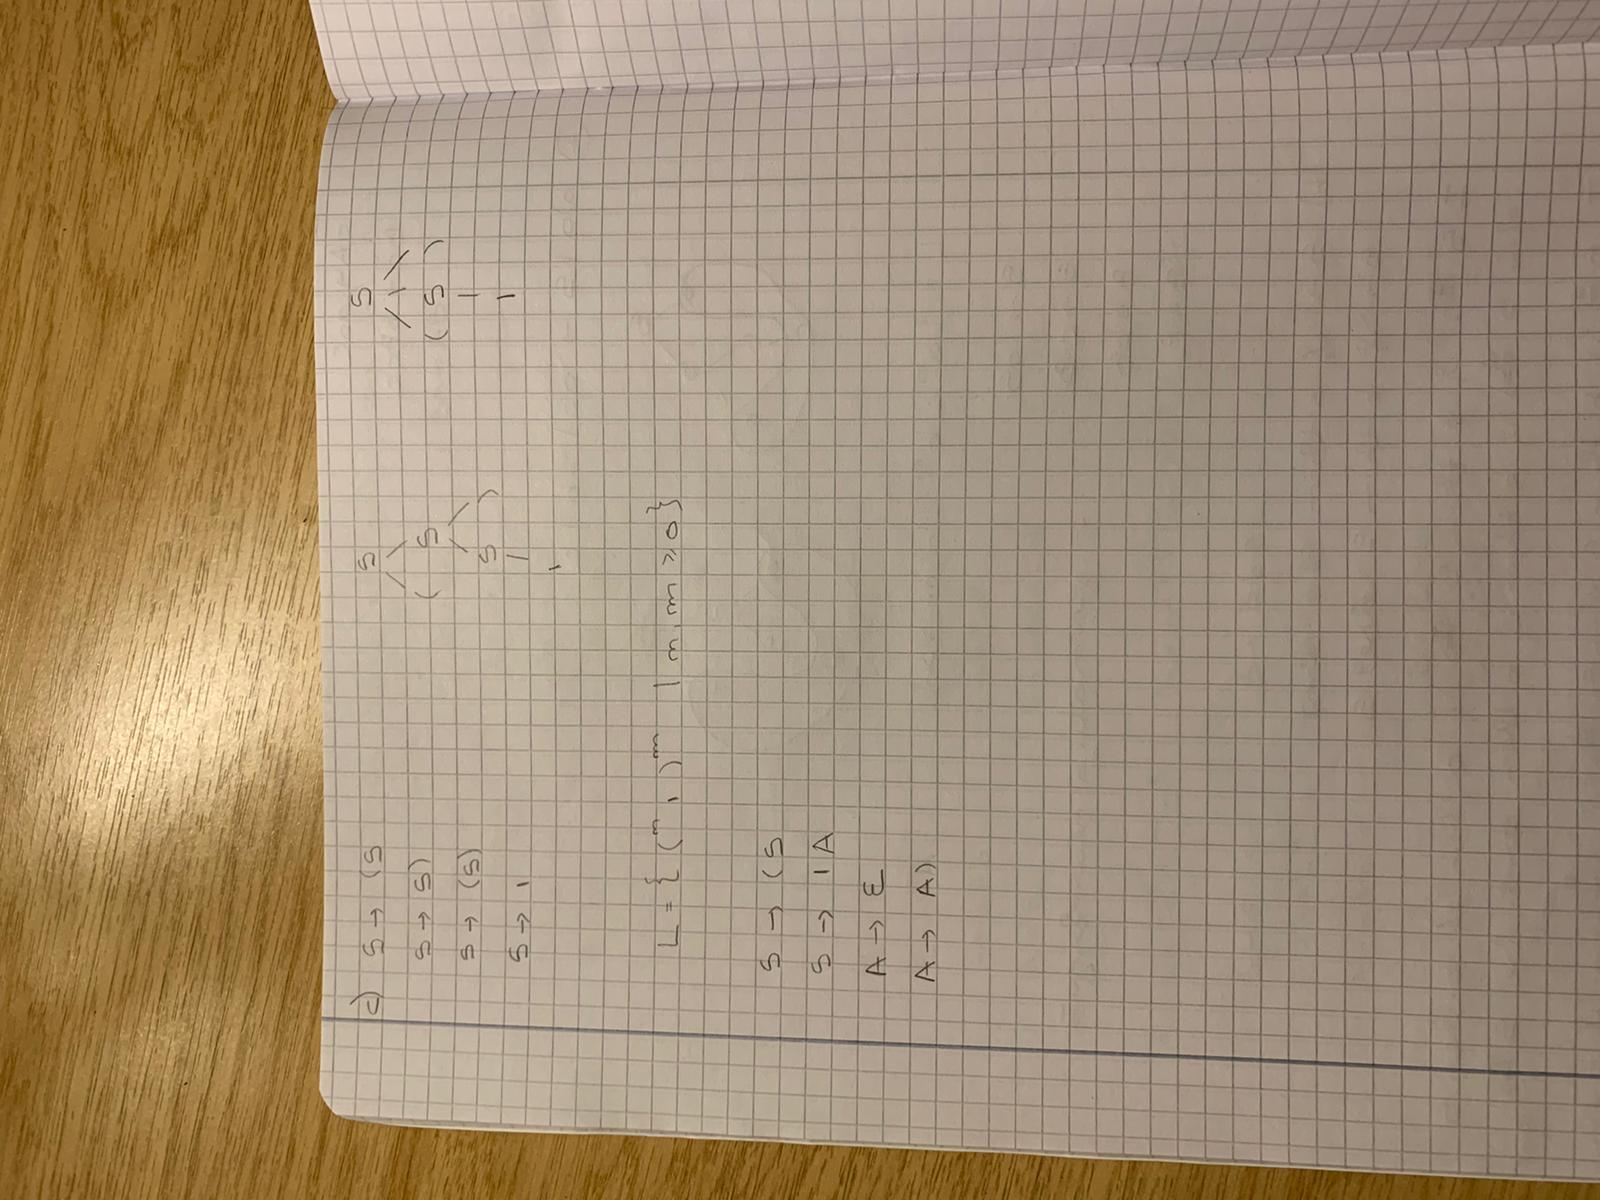 c) S → (S
S → S)
S → (S)
S → 1
S
( S
S )
1
S
( S )
1
L = { (ⁿ 1 )ᵐ | n, m ≥ 0 }
S → (S
S → 1A
A → ε
A → A)